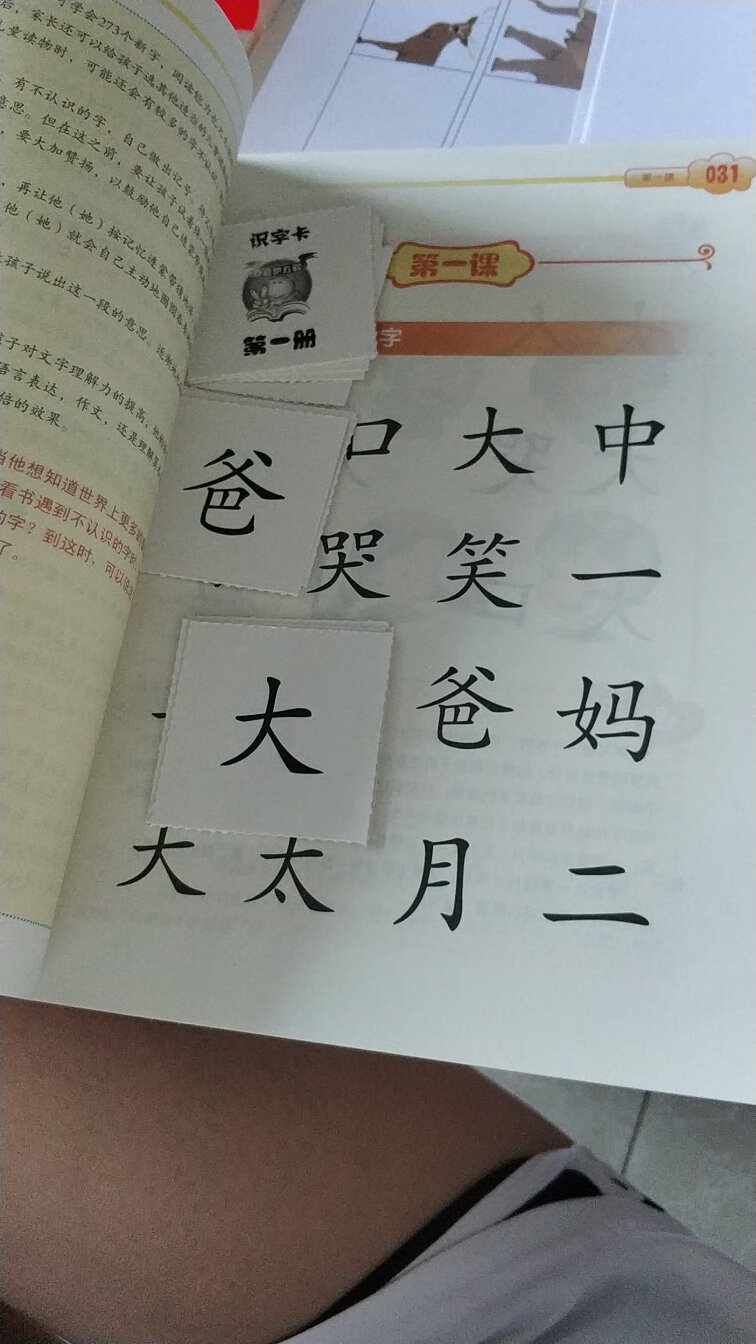 031
第一课
识字卡
第一册
第一课
字
口 大 中
爸
哭 笑 一
大
爸 妈
大 太 月 二
学会273个新字，阅读能力
后，家长还可以给孩子选其他适当的儿童
儿童读物时，可能还会有较多的字不认识
有不认识的字，自己做出记号
意思。但在这之前，要让孩子试着
要大加赞扬，以鼓励他自己
再让他（她）按记忆
他（她）就会自己主动地
孩子说出这一段的意思
孩子对文字理解力的提高
语言表达，作文，还是理解
倍的效果。
当他想知道世界上更多
看书遇到不认识的字
的字？到这时，可以
了。